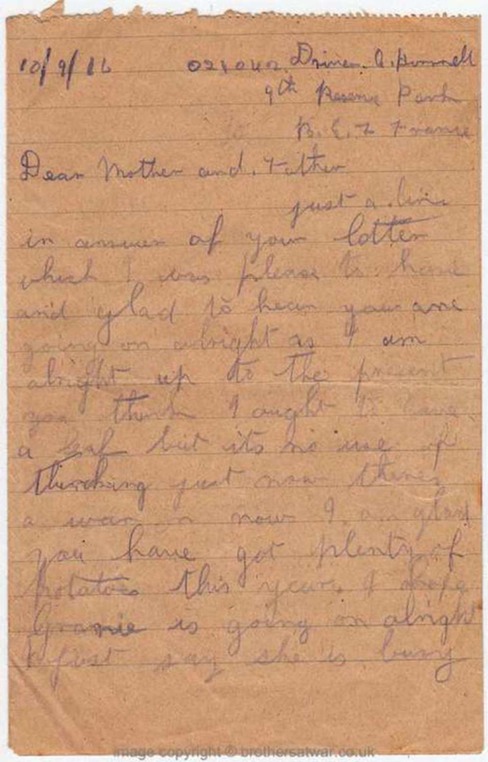 10/9/16 021042 Driver. A. Bunnell
9th Reserve Park
B. E. F France
Dear Mother and. Father
just a. line
in answer of your lotter
which I was please to have
and glad to hear you are
going on alright as I am
alright up to the present
you think I ought to have
a leaf but its no use of
thinking just now theres
a war on now I am glad
you have got plenty of
potatoes this year. I hope
Granie is going on alright
just say she is busy
image copyright © brothersatwar.co.uk